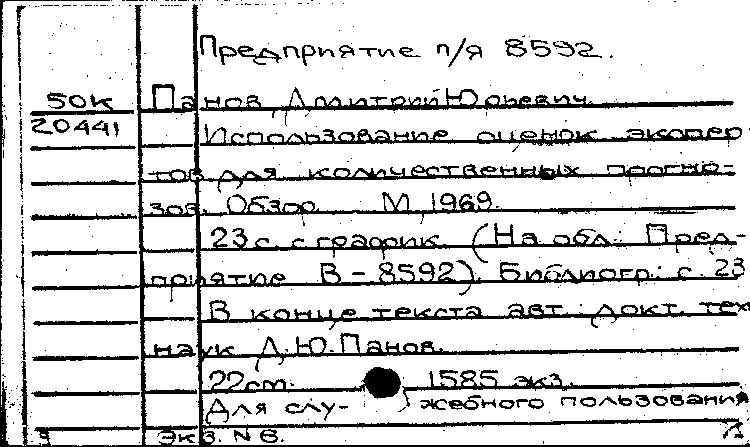 Предприятие п/я 8592.
50К Панов, Дмитрий Юрьевич.
20441 Использование оценок экспер
тов для количественных прогно-
зов. Обзор. М., 1969.
23 с. с график. (На обл.: Пред-
приятие В-8592). Библиогр.: с. 23
В конце текста авт.: докт. тех
наук Д.Ю.Панов.
22см. 1585 экз.
Для слу- жебного пользования
Экз. N 6.